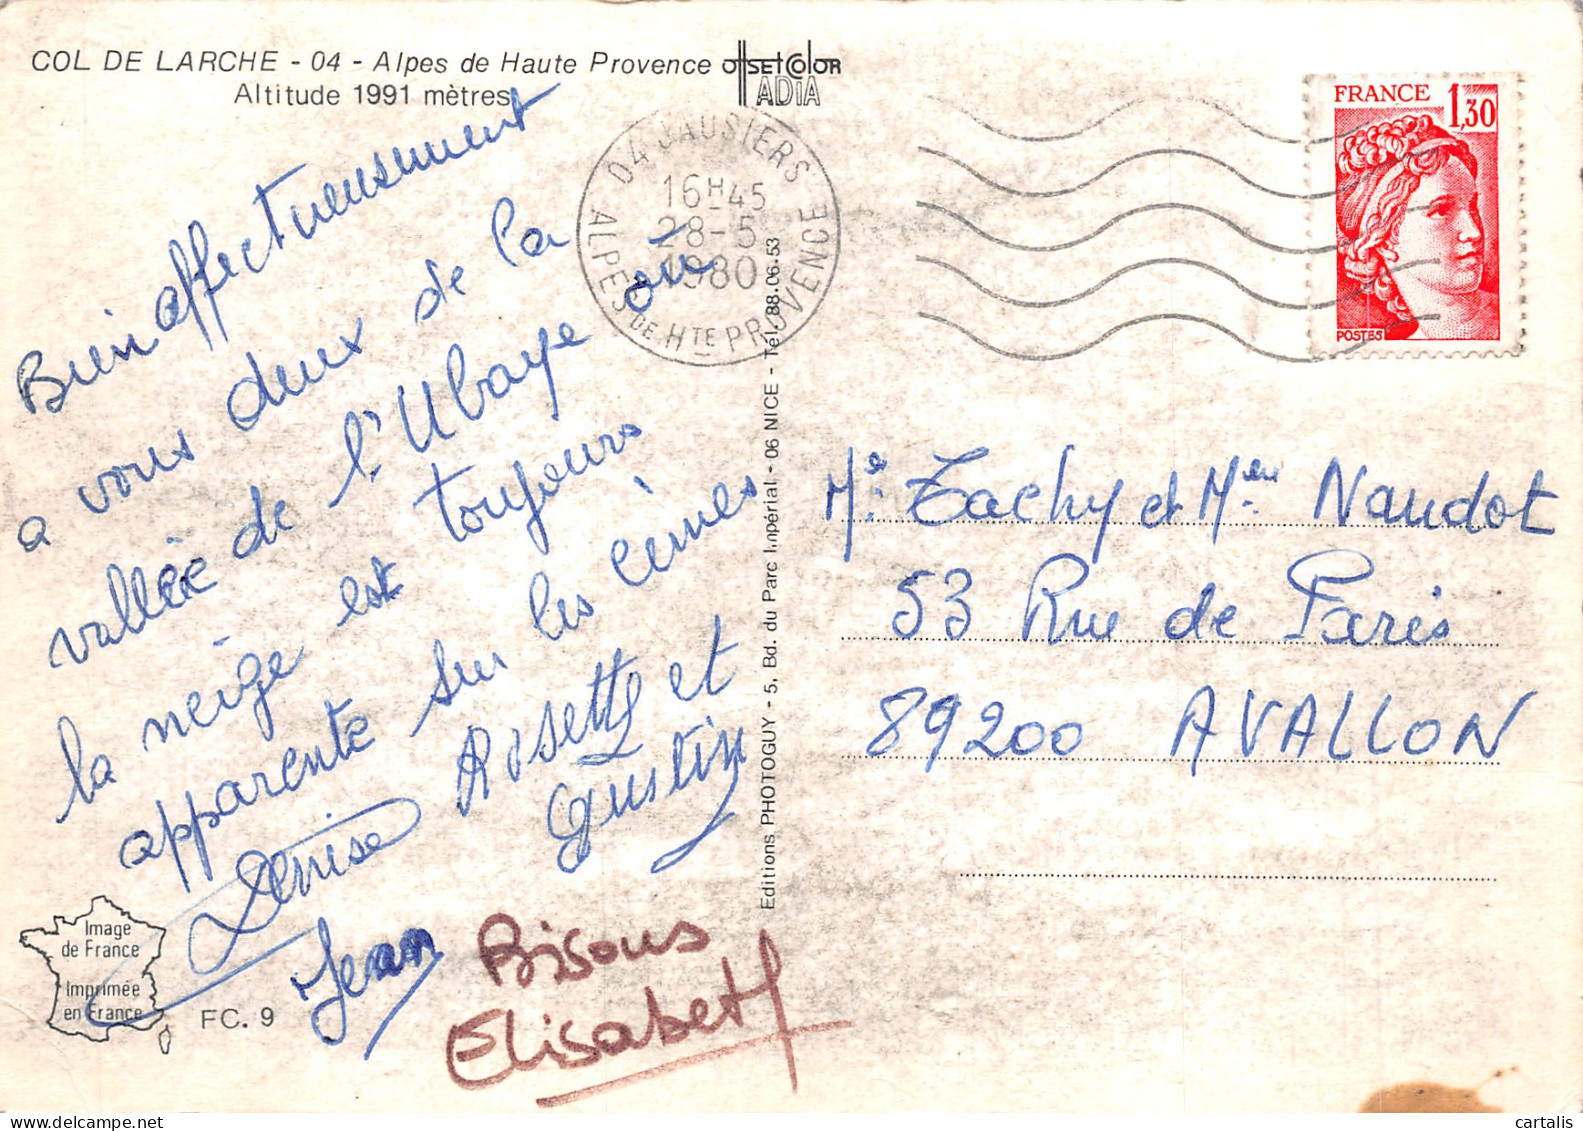 COL DE LARCHE - 04 - Alpes de Haute Provence
Altitude 1991 mètres
OffSEt COlOR
ADIA
Bien affectueusement
a vous deux de la
vallée de l'Ubaye où
la neige est toujours
apparente sur les cîmes
Denise Rosette et
Gustin
Jean
Bisous
Elisabeth
Image
de France
Imprimée
en France
FC. 9
Editions PHOTOGUY - 5, Bd. du Parc Impérial - 06 NICE - Tél. 88.06.53
04 JAUSIERS
16H45
28-5
1980
ALPES DE HTE PROVENCE
FRANCE 1,30
POSTES
Me. Tachy et Mr. Naudot
53 Rue de Paris
89200 AVALLON
cartalis